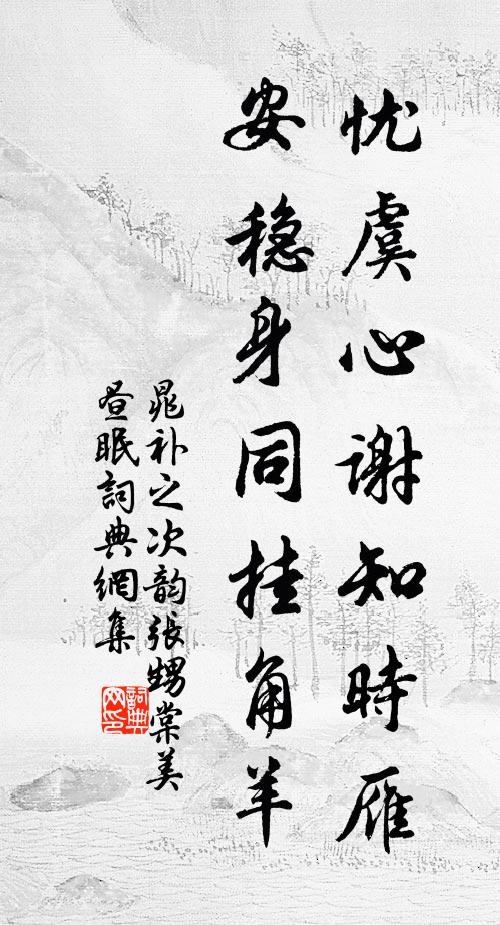 忧虞心谢知時雁
安稳身同挂角羊
晁补之次韵张甥棠美
昼眠詞典網集
詞典
网印